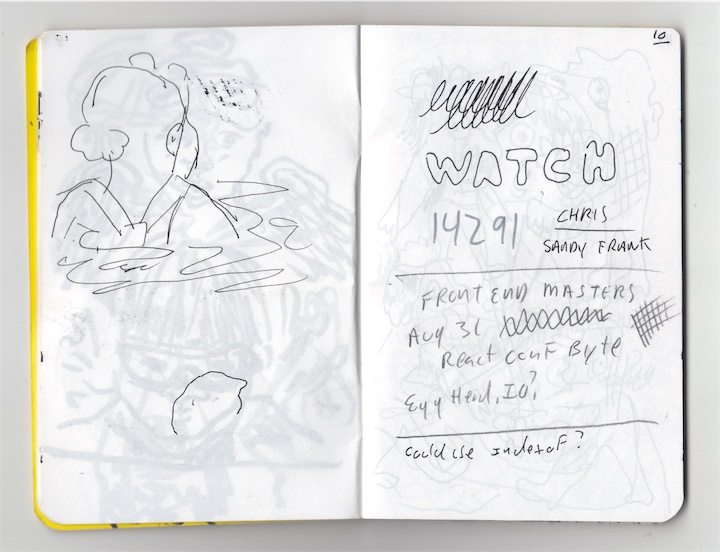 10
WATCH
14291
CHRIS
SANDY FRANK
FRONT END MASTERS
Aug 31
React conf Byte
Egg Head.IO?
could use indexof?